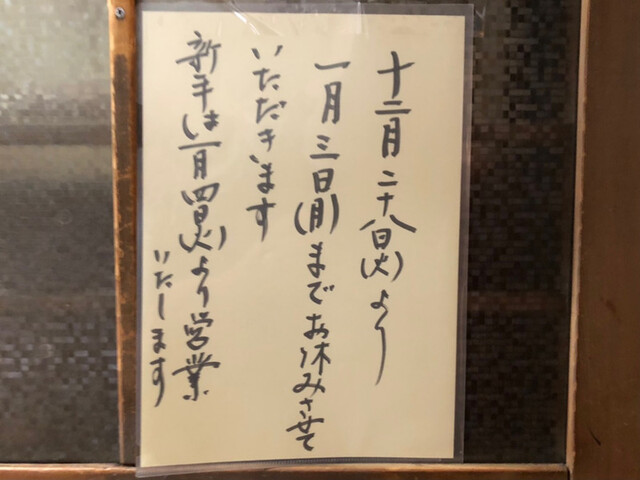 十二月二十八日(火)より
一月三日(月)までお休みさせて
いただきます
新年は一月四日(火)より営業
いたします